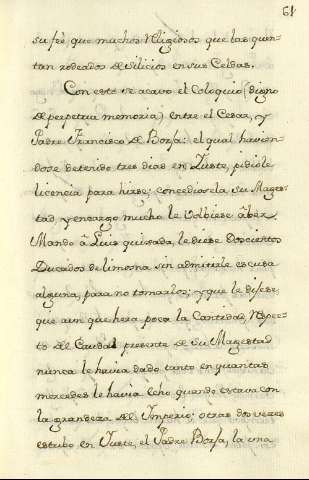 61
su fé, que muchos Religiosos que las quen-
tan rodeados de silicios en sus Celdas.
Con esto se acavo el Coloquio (digno
de perpetua memoria) entre el Cesar, y
Padre Francisco de Borja: el qual havien-
dose detenido tres dias en Yuste, pidiole
licencia para hirse: concediosela su Mages-
tad, y encargo mucho le volbiese à ber.
Mando à Luis quixada, le diese Doscientos
Ducados de limosna sin admitirle escusa
alguna, para no tomarlos; y que le dijese
que aun que hera poca la Cantidad, Respec-
to del Caudal presente de Su Magestad
nunca le havia dado tanto en quantas
mercedes le havia echo, quando estava con
la grandeza del Ymperio: otras dos veces
estubo en Yuste, el Padre Borja, la una